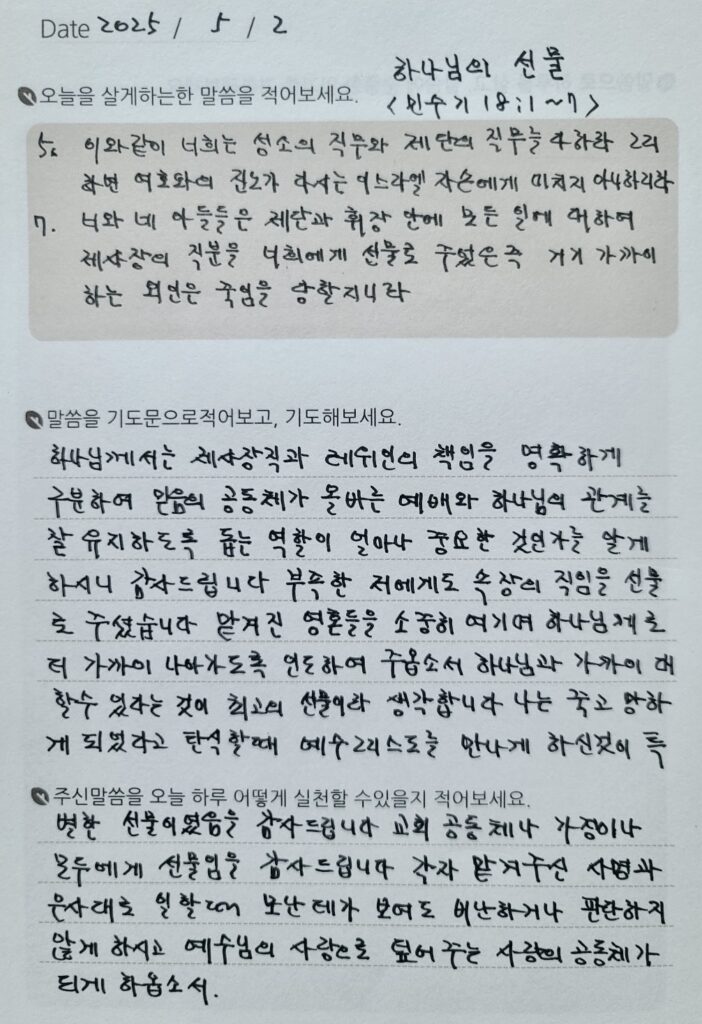 Date 2025 / 5 / 2
하나님의 선물
오늘을 살게하는한 말씀을 적어보세요.
<민수기 18:1~7>
5. 이와같이 너희는 성소의 직무와 제단의 직무를 다하라 그리
하면 여호와의 진노가 다시는 이스라엘 자손에게 미치지 아니하리라
7. 너와 네 아들들은 제단과 휘장 안에 모든 일에 대하여
제사장의 직분을 너희에게 선물로 주었은즉 거기 가까이
하는 외인은 죽임을 당할지니라
말씀을 기도문으로적어보고, 기도해보세요.
하나님께서는 제사장직과 레위인의 책임을 명확하게
구분하여 믿음의 공동체가 올바른 예배와 하나님의 관계를
잘 유지하도록 돕는 역할이 얼마나 중요한 것인지를 알게
하시니 감사드립니다 부족한 저에게도 속장의 직임을 선물
로 주셨습니다 맡겨진 영혼들을 소중히 여기며 하나님께로
더 가까이 나아가도록 인도하여 주옵소서 하나님과 가까이 대
할수 있다는 것이 최고의 선물이라 생각합니다 나는 죽고 망하
게 되었다고 탄식할때 예수그리스도를 만나게 하신것이 특
주신말씀을 오늘 하루 어떻게 실천할 수있을지 적어보세요.
별한 선물이였음을 감사드립니다 교회 공동체나 가정이나
모두에게 선물임을 감사드립니다 각자 맡겨주신 사명과
은사대로 일할때 못난데가 보여도 비난하거나 판단하지
않게 하시고 예수님의 사랑으로 덮어 주는 사랑의 공동체가
되게 하옵소서.